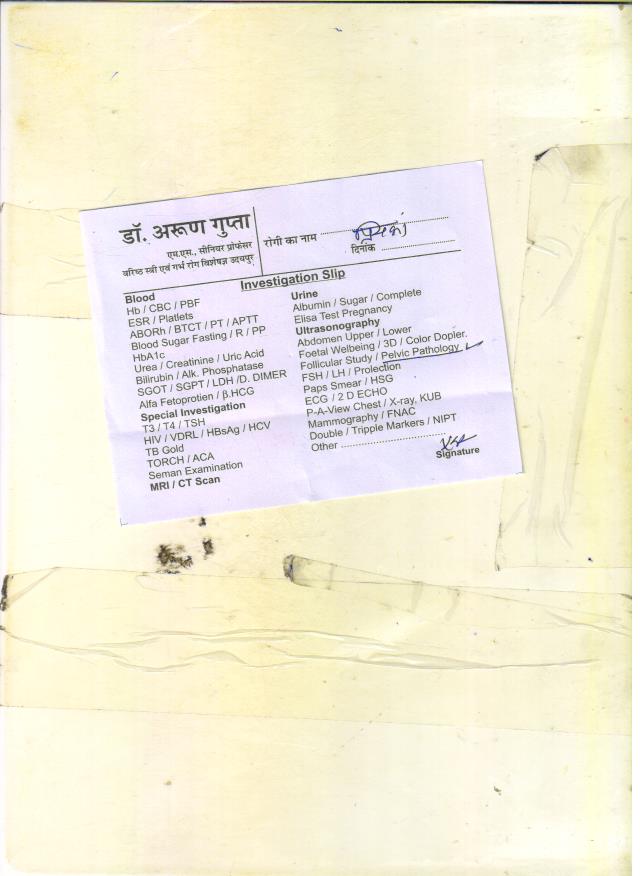 डॉ. अरूण गुप्ता
एम.एस., सीनियर प्रोफेसर
वरिष्ठ स्त्री एवं गर्भ रोग विशेषज्ञ उदयपुर
रोगी का नाम
दिनांक
Investigation Slip
Blood
Hb / CBC / PBF
ESR / Platlets
ABORh / BTCT / PT / APTT
Blood Sugar Fasting / R / PP
HbA1c
Urea / Creatinine / Uric Acid
Bilirubin / Alk. Phosphatase
SGOT / SGPT / LDH /D. DIMER
Alfa Fetoprotien / β.HCG
Special Investigation
T3 / T4 / TSH
HIV / VDRL / HBsAg / HCV
TB Gold
TORCH / ACA
Seman Examination
MRI / CT Scan
Urine
Albumin / Sugar / Complete
Elisa Test Pregnancy
Ultrasonography
Abdomen Upper / Lower
Foetal Welbeing / 3D / Color Dopler.
Follicular Study / Pelvic Pathology
FSH / LH / Prolection
Paps Smear / HSG
ECG / 2 D ECHO
P-A-View Chest / X-ray, KUB
Mammography / FNAC
Double / Tripple Markers / NIPT
Other ..............................
Signature